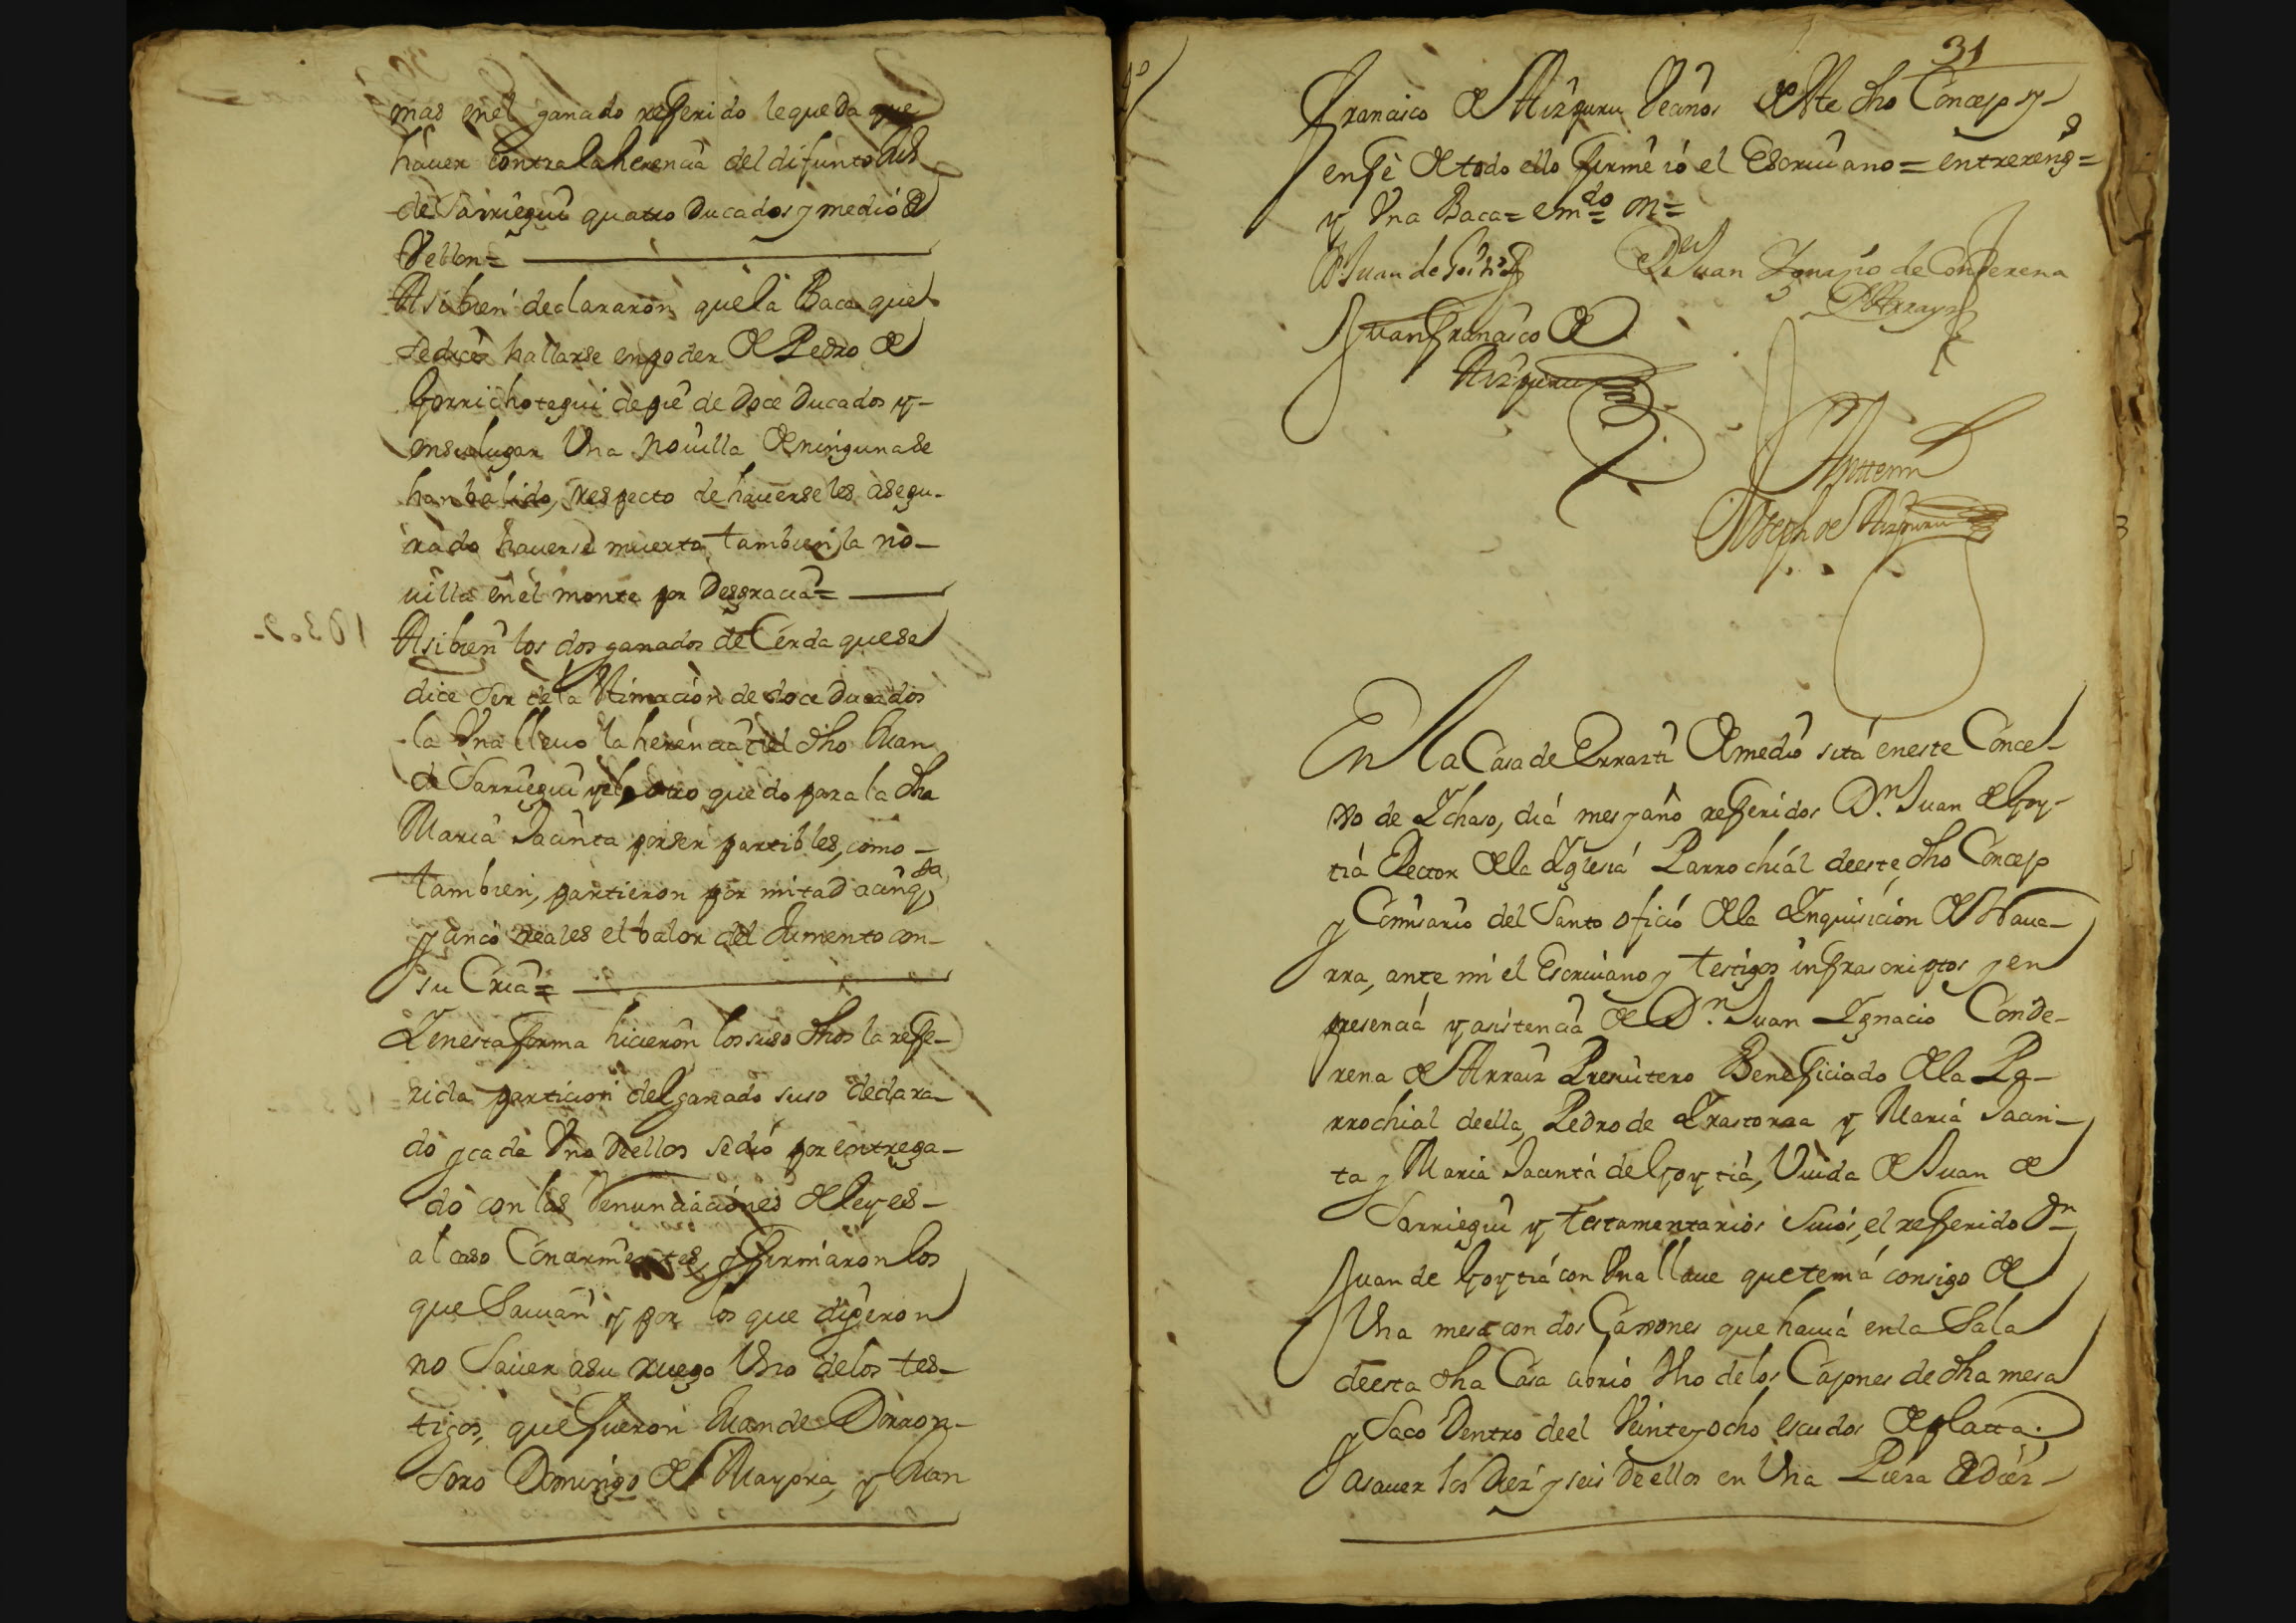 mas en el ganado referido le queda que
hauer contra la herencia del difunto Juº
de Sarriegui quatro Ducados y medio de
Vellon=
Asi bien declararon que la Baca que
se dice hallarse en poder de Pedro de
Gorrichotegui de pie de doce Ducados y
en su lugar Una nouilla de ninguna se
han balido, respecto de hauerseles asegu-
rado hauerse muerto tambien la no-
uilla en el monte por Desgracia=
Asi bien los dos ganados de Cerda que se
dice ser de la Estimacion de doce Ducados
la Una lleuo la herencia del dho Juan
de Sarriegui y el otro quedo para la dha
Maria Jacinta por ser partibles, como
tambien, partieron por mitad a cinqta
y cinco reales el balor del Jumento con
su Cria=
Y en esta forma hicieron los suso dhos la refe-
rida particion del ganado suso declara-
do y cada Uno de ellos se dio por entrega-
do con las Renunciaciones de leyes
al caso Concernientes, y firmaron los
que Sauian y por los que digeron
no Sauer a su ruego Uno de los tes-
tigos, que fueron Juan de Dorron-
soro Domingo de Mayora, y Juan
31
Francisco de Aizpuru Vecinos de este dho Concejo y
en fe de todo ello firme io el Escriuano= entrereng=
y Una Baca= emdo= m=
Dn Juan de Goitia
Dn Juan Ignacio de Conderena
de Arrayz
Juan Francisco de
Aizpuru
Ante mi
Joseph de Aizpuru
En la Casa de Errazti de medio sita en este Conce-
xo de Ichaso, dia mes y año referidos Dn. Juan de Goy-
tia Rector de la Iglesia Parrochial de este dho Concejo
y Comisario del Santo oficio de la Inquisicion de Naua-
rra, ante mi el Escriuano y testigos infrascriptos y en
presencia y asistencia de Dn. Juan Ignacio Conde-
rena de Arraiz Presuitero Beneficiado de la Pa-
rrochial de ella, Pedro de Irastorza y Maria Jacin-
ta y Maria Jacinta de Goytia, Viuda de Juan de
Sarriegui y testamentarios suios, el referido Dn
Juan de Goytia con Una llaue que tenia consigo de
Una mesa con dos Caxones que hauia en la Sala
de esta dha Casa abrio Uno de los Cajones de dha mesa
y Saco Dentro de el Veinte y ocho escudos de platta.
Asauer los Diez y seis de ellos en Una Pieza de Diez